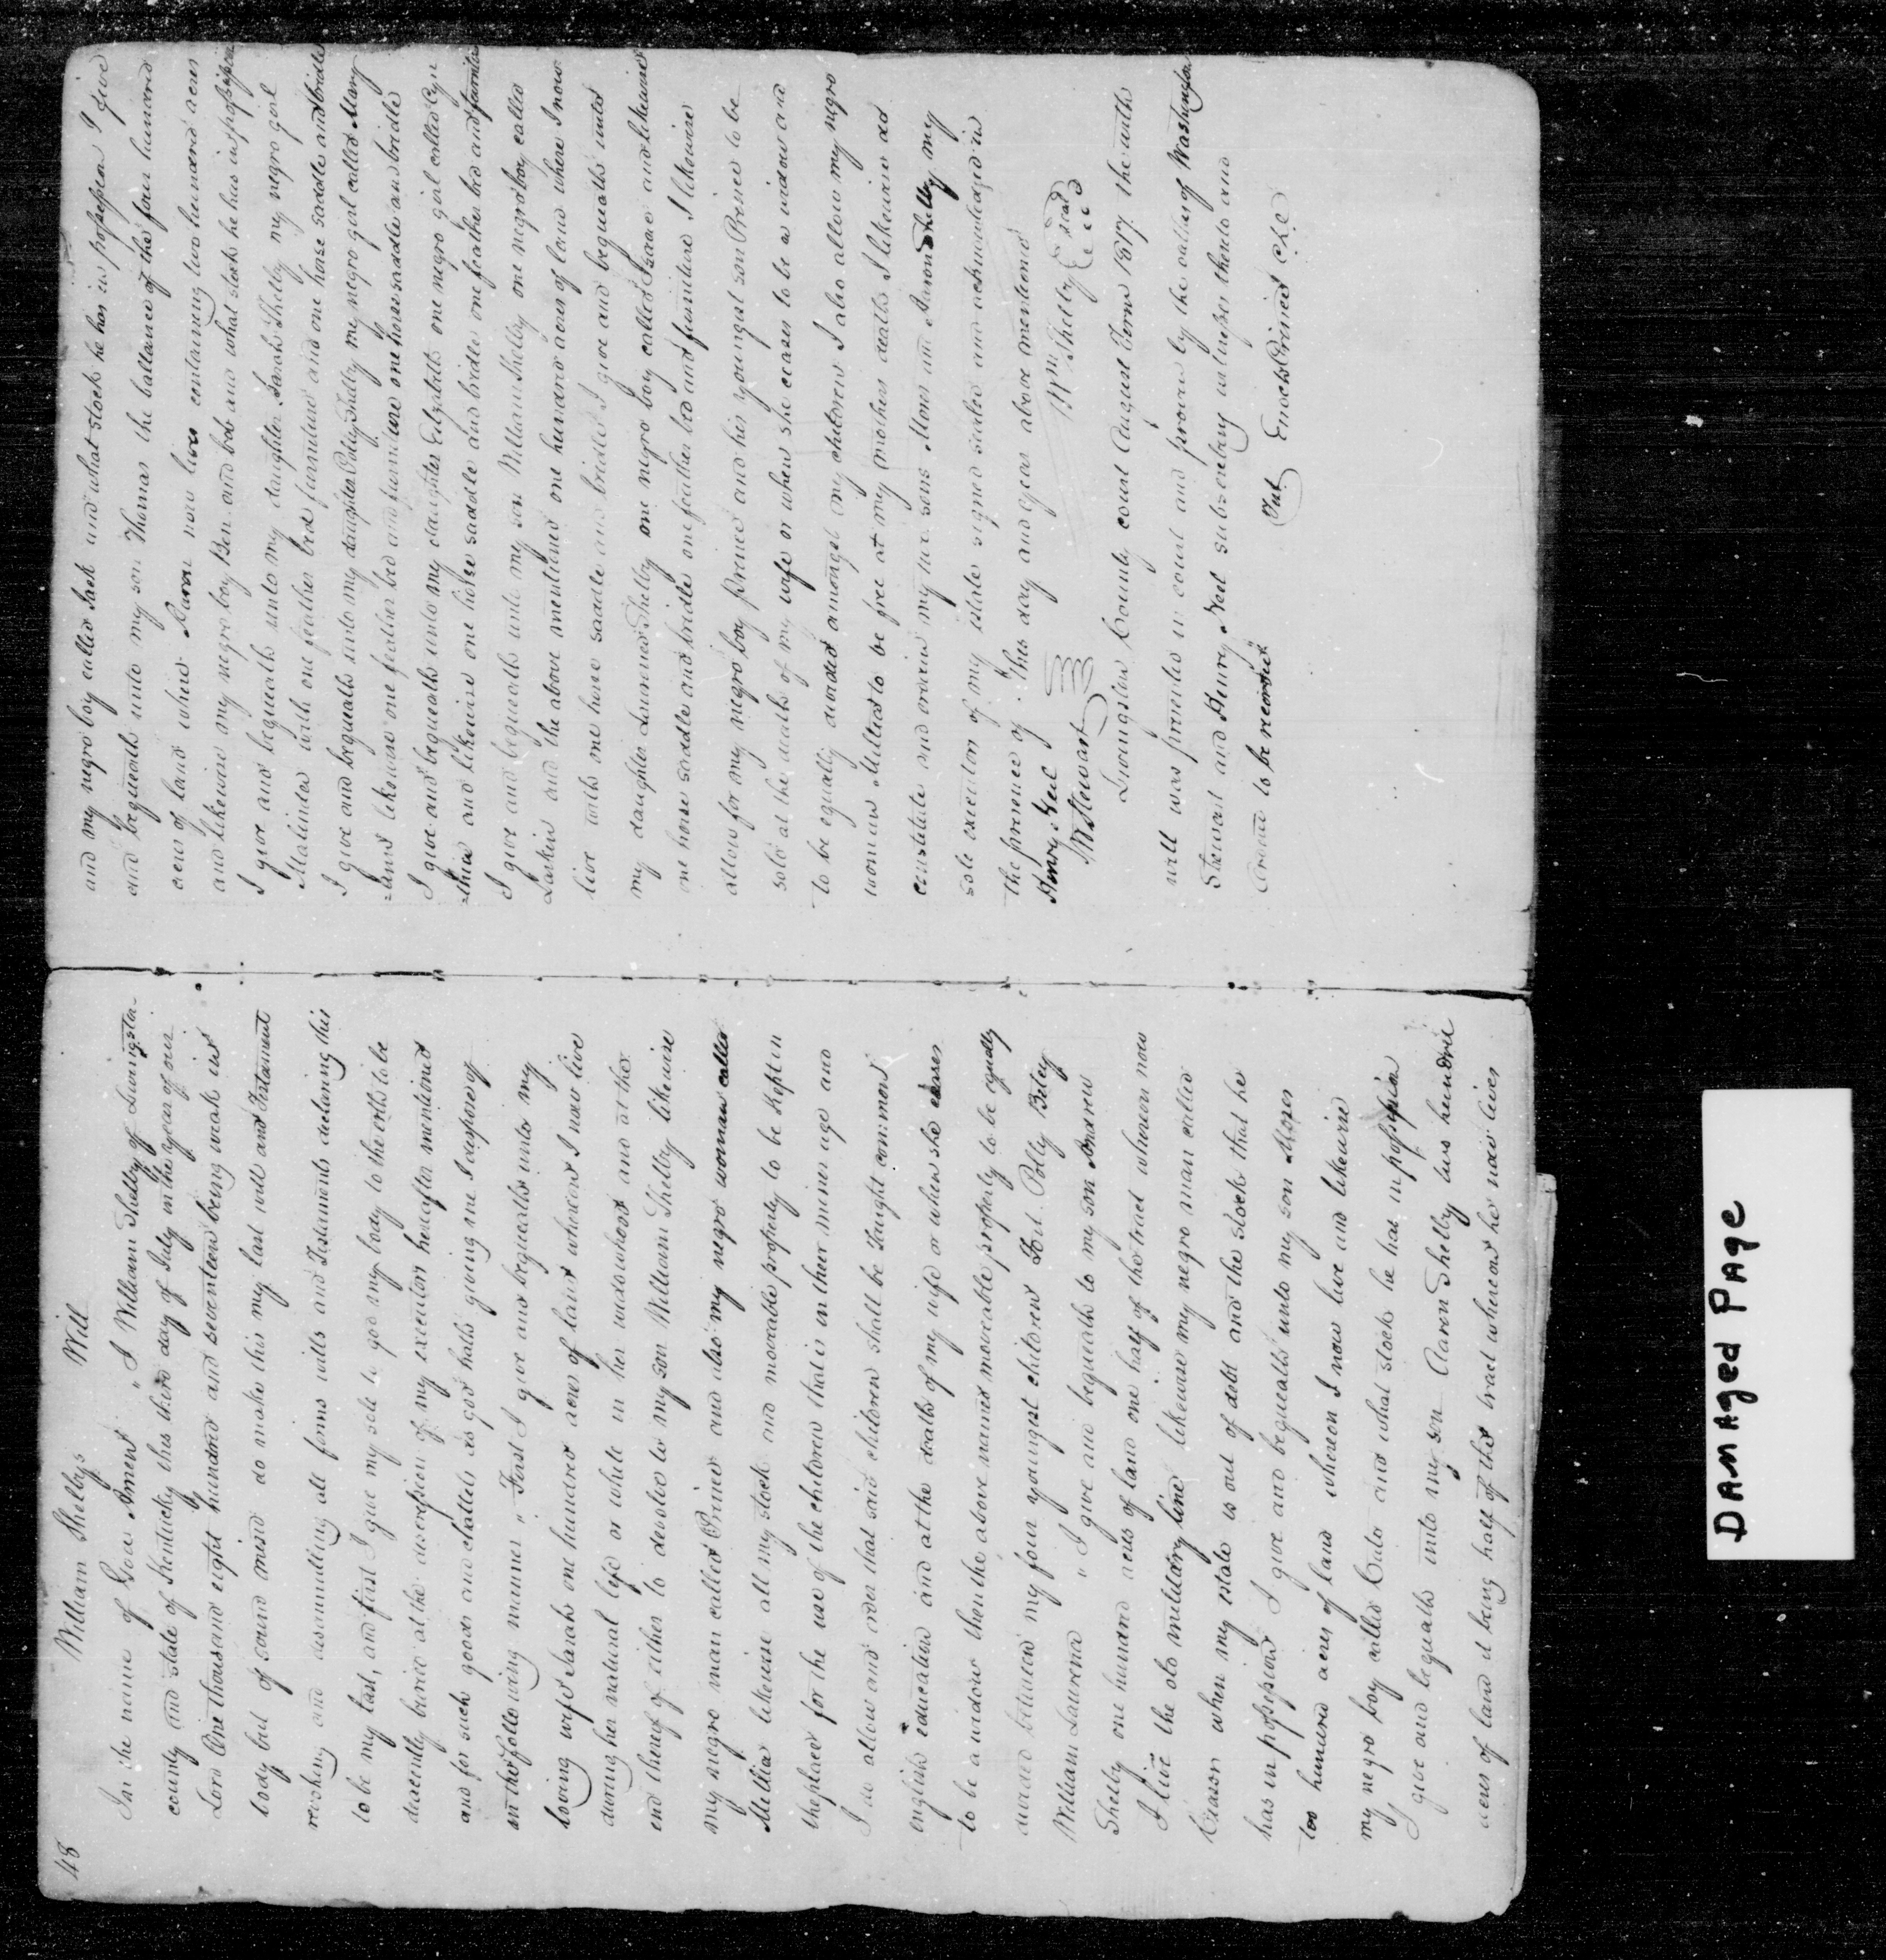 48 William Shelbys Will
In the name of God Amen " I William Shelby of Livingston
county and state of Kentucky this third day of July in the year of our
Lord One thousand eight hundred and seventeen being weak in
body but of sound mind do make this my last will and Testament
revoking and disannulling all forms wills and Testaments declaring this
to be my last, and first I give my sole to god my body to the erth to be
decently buried at the discresion of my executor hereafter mentioned
and for such goods and chattels as god hath giving me I dispose of
in the following manner " First I give and bequeath unto my
loving wife Sarah one hundred acres of land whereon I now live
during her natural life or while in her widowhood and at the
end thereof either to devolve to my son William Shelby likewise
my negro man called Prince and also my negro woman called
Millia likewise all my stock and moveable property to be kept on
the place for the use of the children that is in ther minor age and
I do allow and order that said children shall be taught common
english education and at the death of my wife or when she ceases
to be a widow then the above named moveable property to be equally
divided between my four youngest children Polly Betsy
William Laurena " I give and bequeath to my son Andrew
Shelby one hundred acres of land one half of the tract whereon now
I live the old military line likewise my negro man called
when my estate is out of debt and the stock that he
has in possession I give and bequeath unto my son Moses
too hundred acres of land whereon I now live and likewise
my negro boy called Cato and what stock he has in possession
I give and bequeath unto my son Aaron Shelby two hundred
acres of land it being half of the tract whereon he now lives
and my negro boy called Jack and what stock he has in possession I give
and bequeath unto my son Thomas the ballance of the four hundred
acres of land where Aaron now lives containing two hundred acres
and likewise my negro boy Ben and bob and what stock he has in possession
I give and bequeath unto my daughter Sarah Shelby my negro girl
Malinda with one feather bed furniture and one horse saddle and bridle
I give and bequeath unto my daughter Polly Shelby me negro girl called Mary
likewise one feather bed and furniture one horse saddle and bridle
I give and bequeath unto my daughter Elizabeth one negro girl called Cyn
=thia and likewise one horse saddle and bridle one feather bed and furniture
I give and bequeath unto my son William Shelby one negro boy called
Larkin and the above mentioned one hundred acres of land where I now
live with one horse saddle and bridle I give and bequeath unto
my daughter Laurena Shelby one negro boy called Isaac and likewise
one horse saddle and bridle one feather bed and furniture I likewise
allow for my negro boy prince and his youngest son Prince to be
sold at the death of my wife or when she ceases to be a widow and
to be equally divided amongst my children I also allow my negro
woman Millia to be free at my mothers death I likewise do
constitute and ordain my two sons Moses and Aaron Shelby my
sole executors of my estate signed sealed and acknowledged in
the presence of this day and year above mentioned
Henry Neel Wm Shelby Seal
W Stewart
Livingston County court August Term 1817 the with
will was proved in court and proven by the oaths of Washington
Stewart and Henry Neel subscribing witnesses thereto and
ordered to be recorded Test Enoch Prince clk
Damaged Page